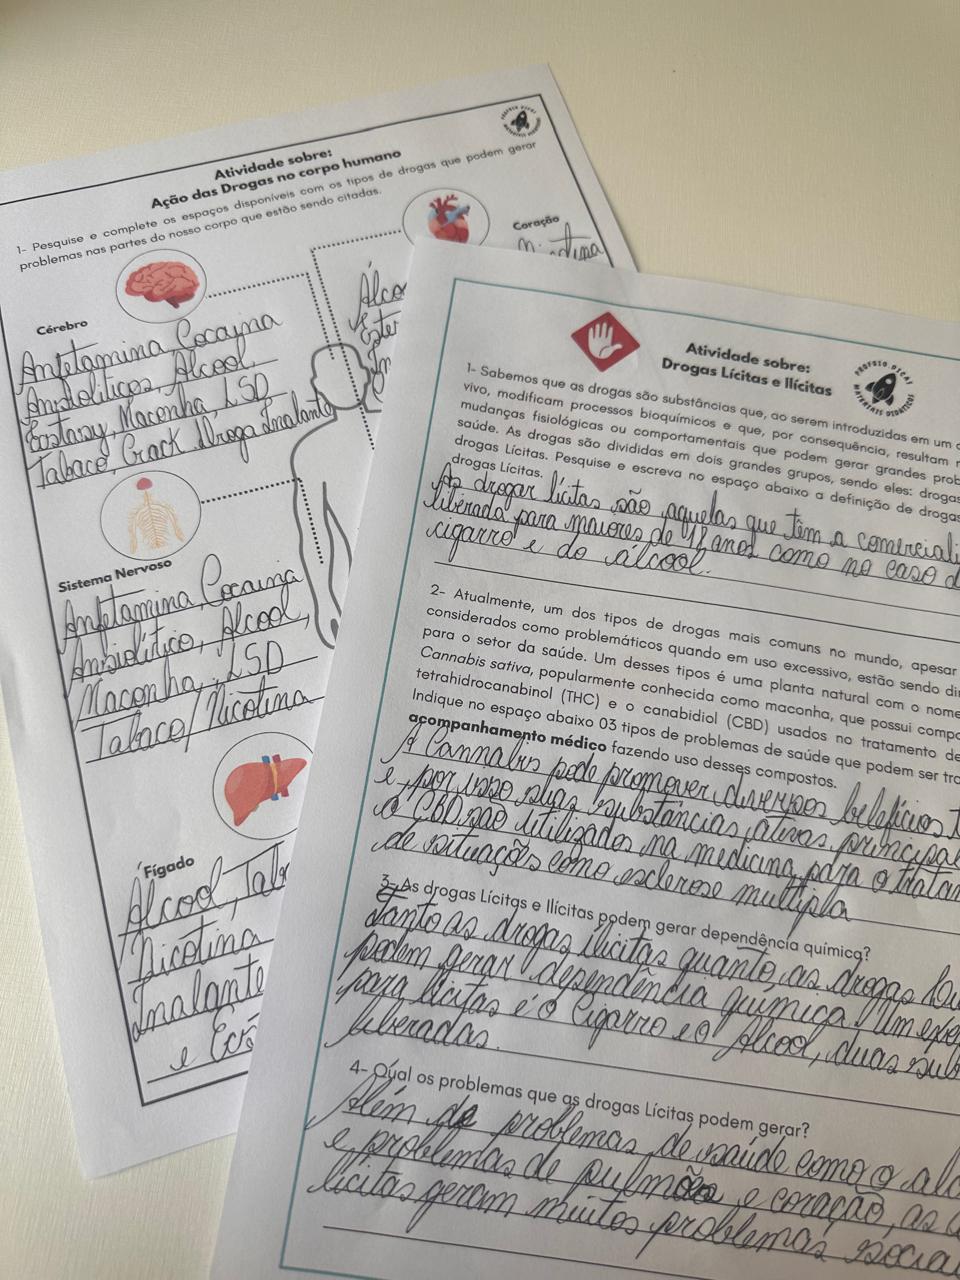 Atividade sobre:
Ação das Drogas no corpo humano
1- Pesquise e complete os espaços disponíveis com os tipos de drogas que podem gerar
problemas nas partes do nosso corpo que estão sendo citadas.
Coração
Cérebro
Anfetamina Cocaina
Ansioliticos, Alcool,
Ecstasy, Maconha, LSD
Tabaco, Crack, Droga Inalante
Sistema Nervoso
Anfetamina, Cocaina
Ansiolítico, Alcool,
Maconha, LSD
Tabaco/Nicotina
Fígado
Álcool,
Nicotina
Inalante
e
PROFESSO DECAT
MATERIAIS DIDÁTICOS
Atividade sobre:
Drogas Lícitas e Ilícitas
1- Sabemos que as drogas são substâncias que, ao serem introduzidas em um
vivo, modificam processos bioquímicos e que, por consequência, resultam
mudanças fisiológicas ou comportamentais que podem gerar grandes
saúde. As drogas são divididas em dois grandes grupos, sendo eles:
drogas Lícitas. Pesquise e escreva no espaço abaixo a definição de
drogas Lícitas.
As drogas lícitas são aquelas que têm a
liberada para maiores de 18 anos como no caso
cigarro e do álcool.
2- Atualmente, um dos tipos de drogas mais comuns no mundo, apesar
considerados como problemáticos quando em uso excessivo, estão sendo
para o setor da saúde. Um desses tipos é uma planta natural com o nome
Cannabis sativa, popularmente conhecida como maconha, que possui
tetrahidrocanabinol (THC) e o canabidiol (CBD) usados no tratamento de
Indique no espaço abaixo 03 tipos de problemas de saúde que podem ser
acompanhamento médico fazendo uso desses compostos.
A Cannabis pode promover diversos
e, por isso suas substâncias ativas
o CBD são utilizados na medicina para o
de situações como esclerose multipla
3- As drogas Lícitas e Ilícitas podem gerar dependência química?
Tanto as drogas ilicitas quanto as drogas
podem gerar dependência química. Um
para lícitas é o Cigarro e o Álcool, duas
liberadas.
4- Qual os problemas que as drogas Lícitas podem gerar?
Além de problemas de saúde como o
e problemas de pulmão e coração, as
lícitas geram muitos problemas